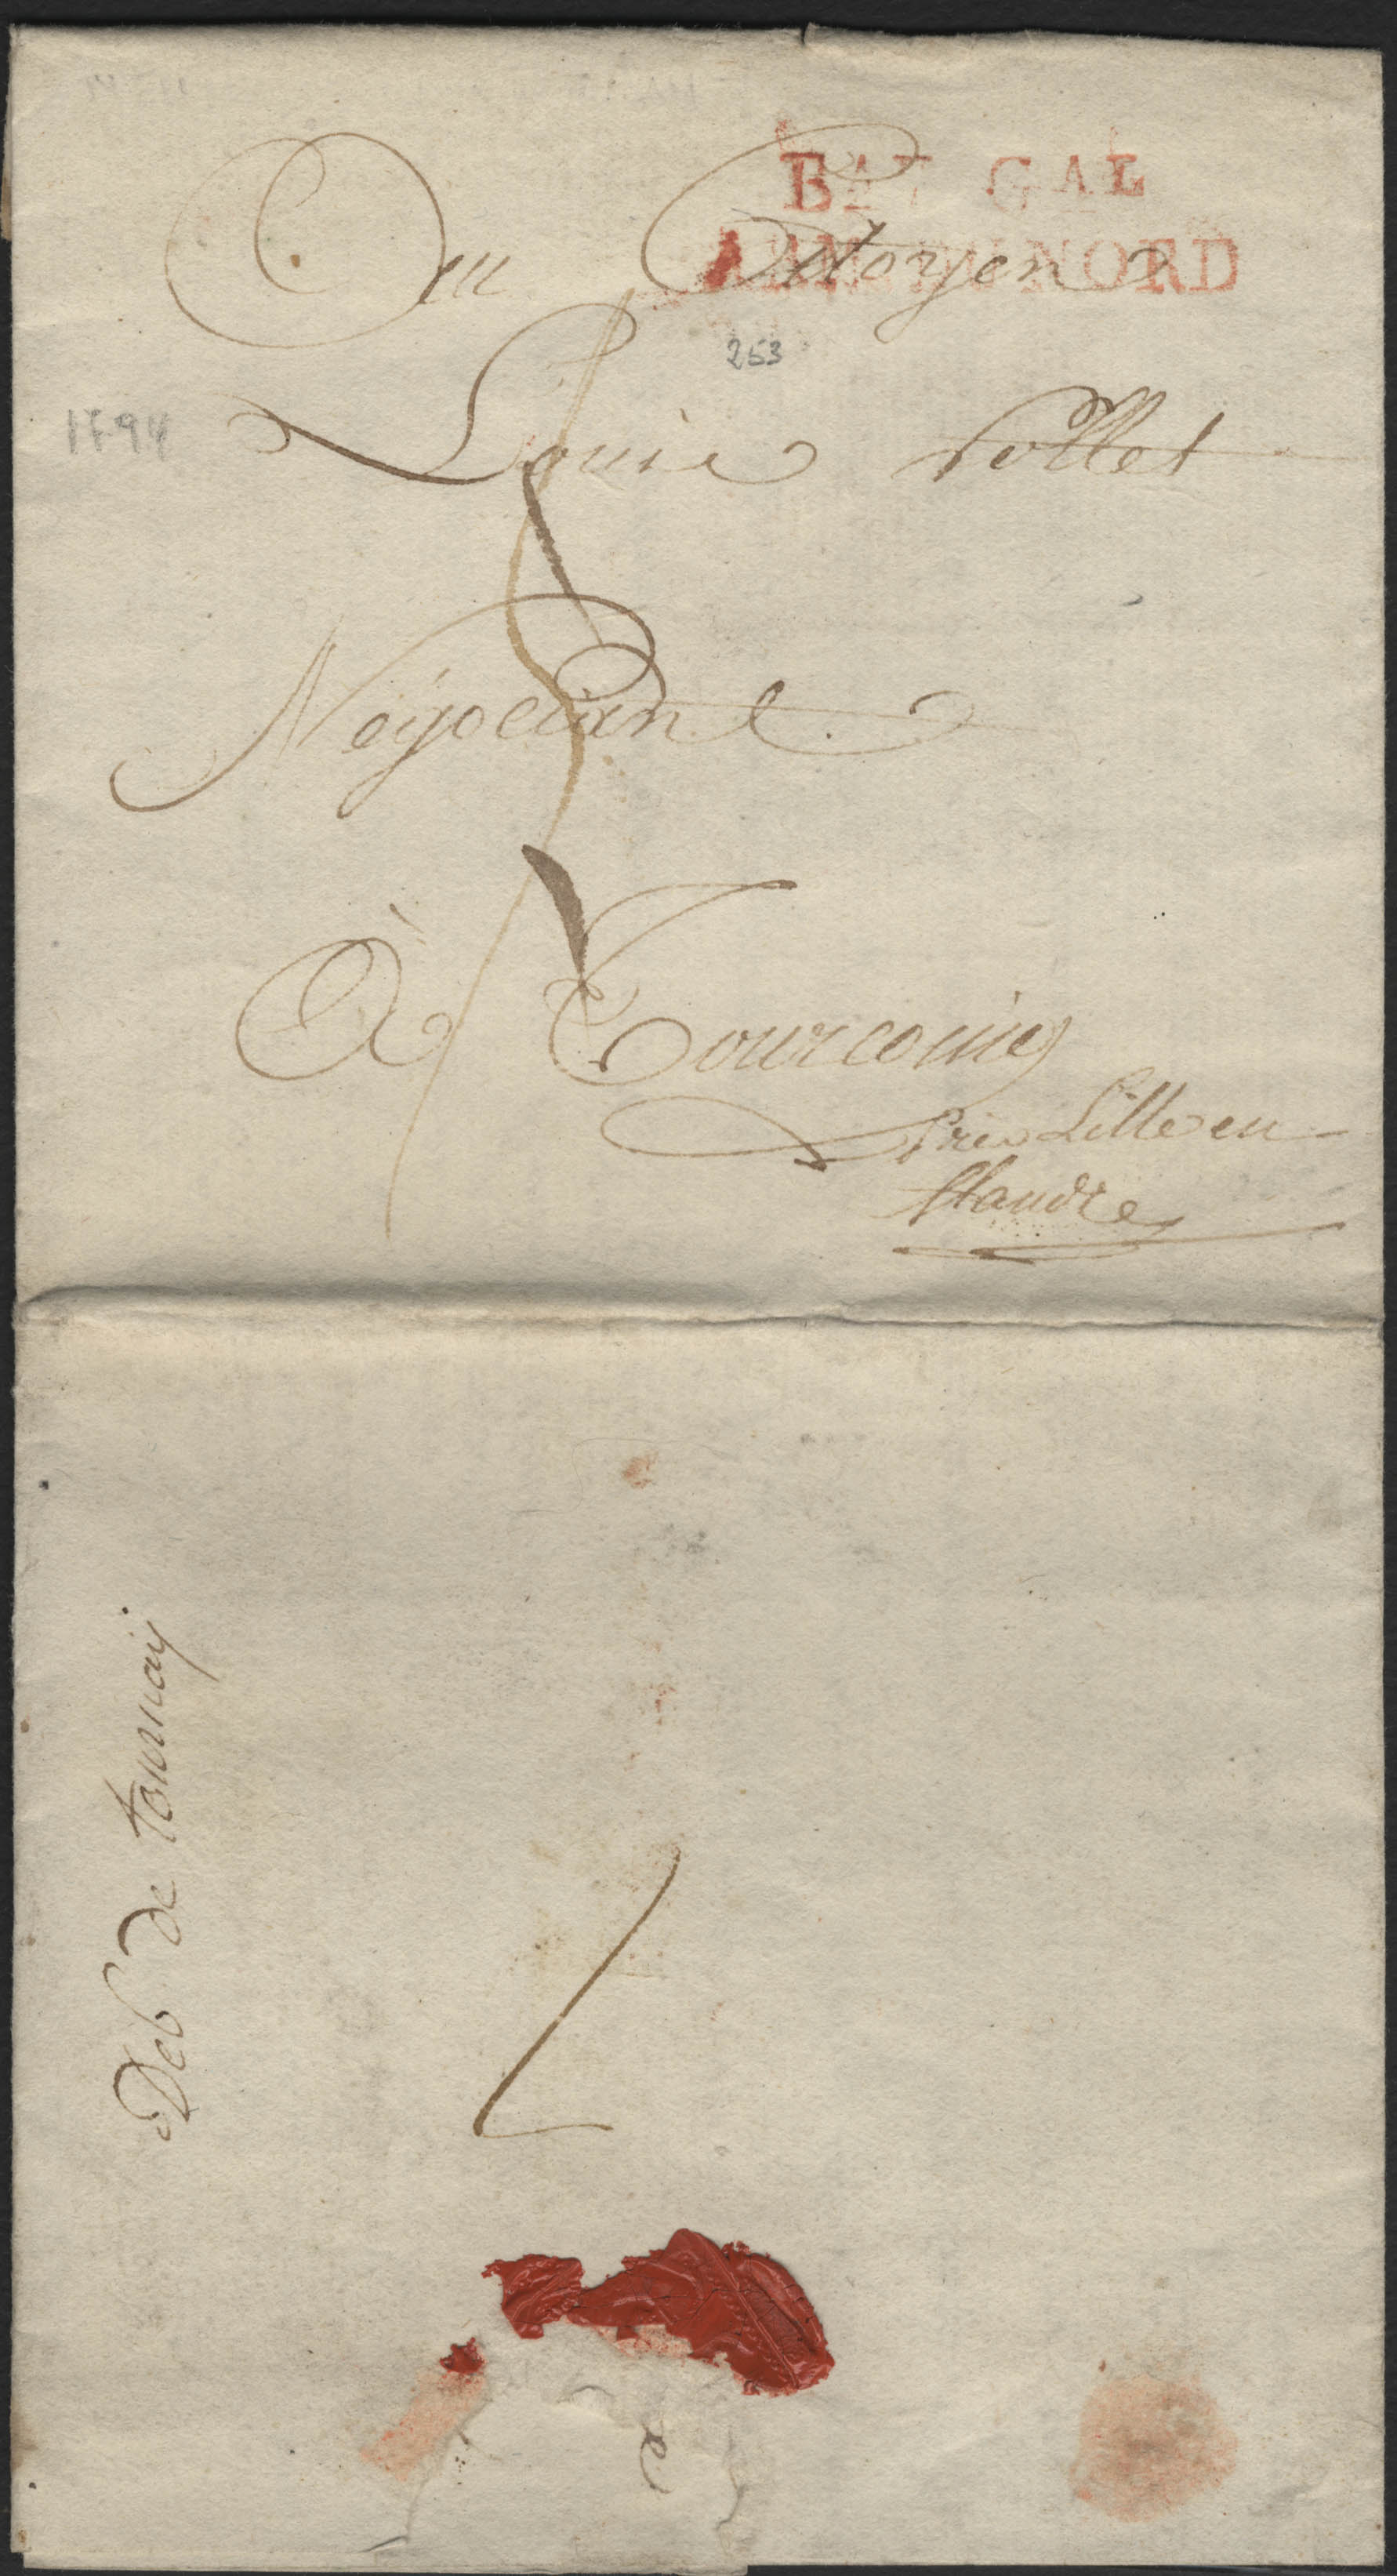 BAU GAL
ARM DU NORD
Au Citoyen
253
1794
Louis Pollet
Negociant
à Tourcoing
Pres Lille en
flandre
Deb de tournay
2